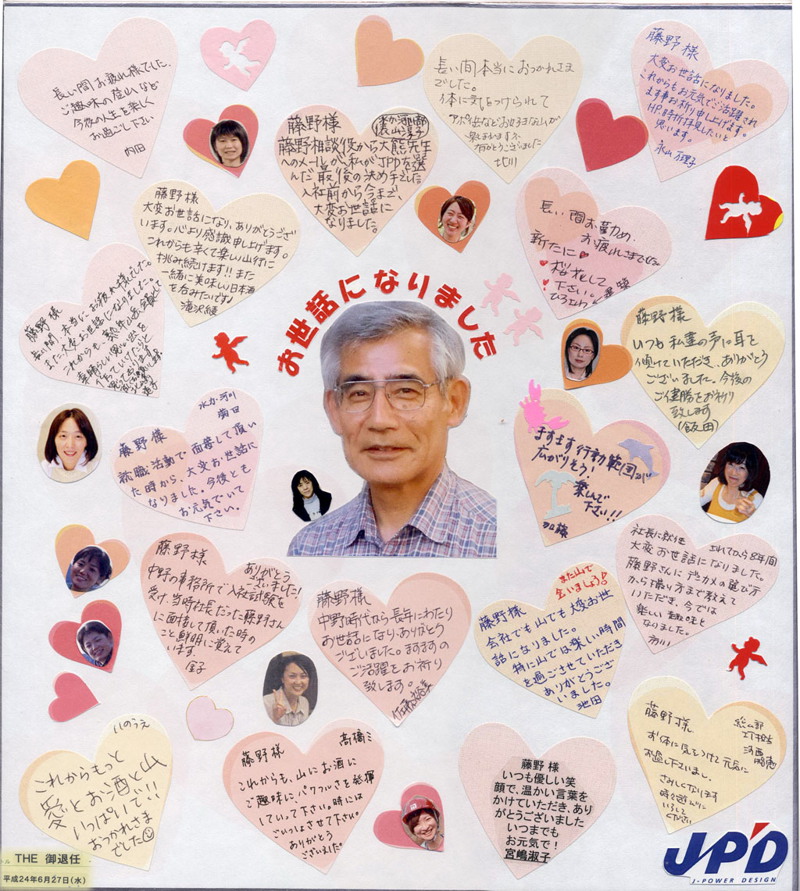 長い間お疲れ様でした。
ご趣味の登山など
今後の人生を楽しく
お過ごし下さい
内田
長い間本当におつかれさま
でした。
体に気をつけられて
ありがとうございました
北川
藤野様
大変お世話になりました。
これからもお元気でご活躍され
ます事お祈り申し上げます。
HPを時折拝見したいと
思います。
永山 万理子
藤野様
藤野相談役から大熊先生
へのメールが、私がJPDを選
んだ最後の決め手でした
入社前から今まで、
大変お世話に
なりました。
藤野様
大変お世話になり、ありがとうござ
います。心より感謝申し上げます。
これからも辛くて楽しい山行に
挑み続けます!!また
一緒に美味しい日本酒
を呑みたいですね
滝沢綾
長い間お勤め、
お疲れさまでした
新たに
桜花して
下さい。
藤野様
長い間、本当にお疲れ様でした。
また大変お世話になりました。
これからも
素晴らしい思い出を
お世話になりました
藤野様
いつも私達の声に耳を
傾けていただき、ありがとう
ございました。今後の
ご健勝をお祈り
致します
(飯田)
水力・河川
菊田
藤野様
就職活動で面接して頂い
た時から、大変お世話に
なりました。今後とも
お元気でいて
下さい。
ますます行動範囲が
広がりそう!
楽しんで
下さい!!
加藤
藤野様
ありがとう
ございました!
中野の事務所で入社試験を
受け、当時社長だった藤野さん
に面接して頂いた時の
こと鮮明に覚えて
います。
金子
藤野様
中野時代から長年にわたり
お世話になり、ありがとう
ございました。ますますの
ご活躍をお祈り
致します。
また山で
会いましょう!
藤野様
会社でも山でも大変お世
話になりました。
特に山では楽しい時間
を過ごさせていただき
ありがとうござ
いました。
池田
社長に就任されてから8年間
大変お世話になりました。
藤野さんにデジカメの選び方
から撮り方まで教えて
いただき、今では
楽しい趣味と
なりました。
市川
いのうえ
これからもっと
愛とお酒と山
いっぱいで!!
おつかれさま
でした
藤野様
高橋ミ
これからも、山にお酒に
ご趣味に、パワフルさを発揮
していって下さい。時には
ごいっしょさせて下さい。
ありがとう
ございました
藤野 様
いつも優しい笑
顔で、温かい言葉を
かけていただき、あり
がとうございました
いつまでも
お元気で!
宮嶋淑子
藤野様
お体に気をつけて元気に
お過し下さいませ。
さみしくなります
時々遊びに
いらして
ください
THE 御退任
平成24年6月27日(水)
JPD
J-POWER DESIGN